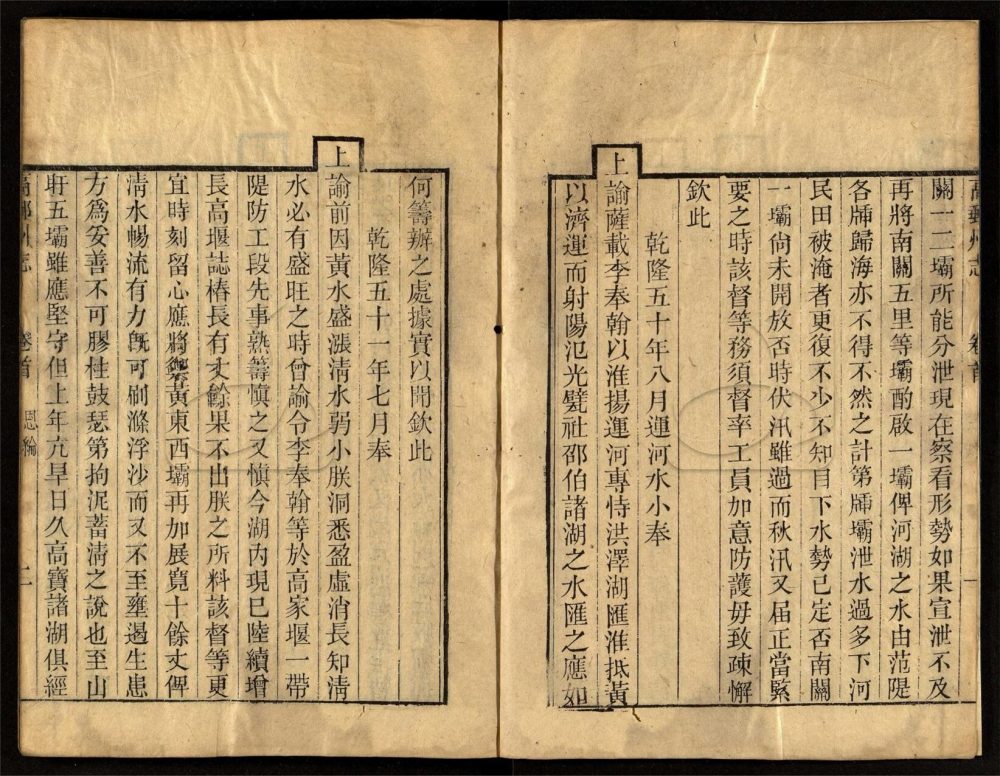 高郵州志 卷首 一
關一二壩所能分泄現在察看形勢如果宣泄不及
再將南關五里等壩酌啟一壩俾河湖之水由范隄
各牐歸海亦不得不然之計第牐壩泄水過多下河
民田被淹者更復不少不知目下水勢已定否南關
一壩尙未開放否時伏汛雖過而秋汛又届正當緊
要之時該督等務須督率工員如意防護毋致疎懈
欽此
乾隆五十年八月運河水小奉
上諭薩載李奉翰以淮揚運河專恃洪澤湖匯淮抵黃
以濟運而射陽氾光甓社邵伯諸湖之水匯之應如
何籌辦之處據實以聞欽此
乾隆五十一年七月奉
上諭前因黃水盛漲清水弱小朕洞悉盈虛消長知清
水必有盛旺之時曾諭令李奉翰等於高家堰一帶
隄防工段先事熟籌愼之又愼今湖內現已陸續增
長高堰誌樁長有丈餘果不出朕之所料該督等更
宜時刻留心應將禦黃東西壩再加展寬十餘丈俾
淸水暢流有力旣可刷滌浮沙而又不至壅遏生患
方爲妥善不可膠柱鼓瑟第拘泥蓄淸之說也至山
盱五壩雖應堅守但上年亢旱日久高寶諸湖俱經
高郵州志 卷首 恩綸 二